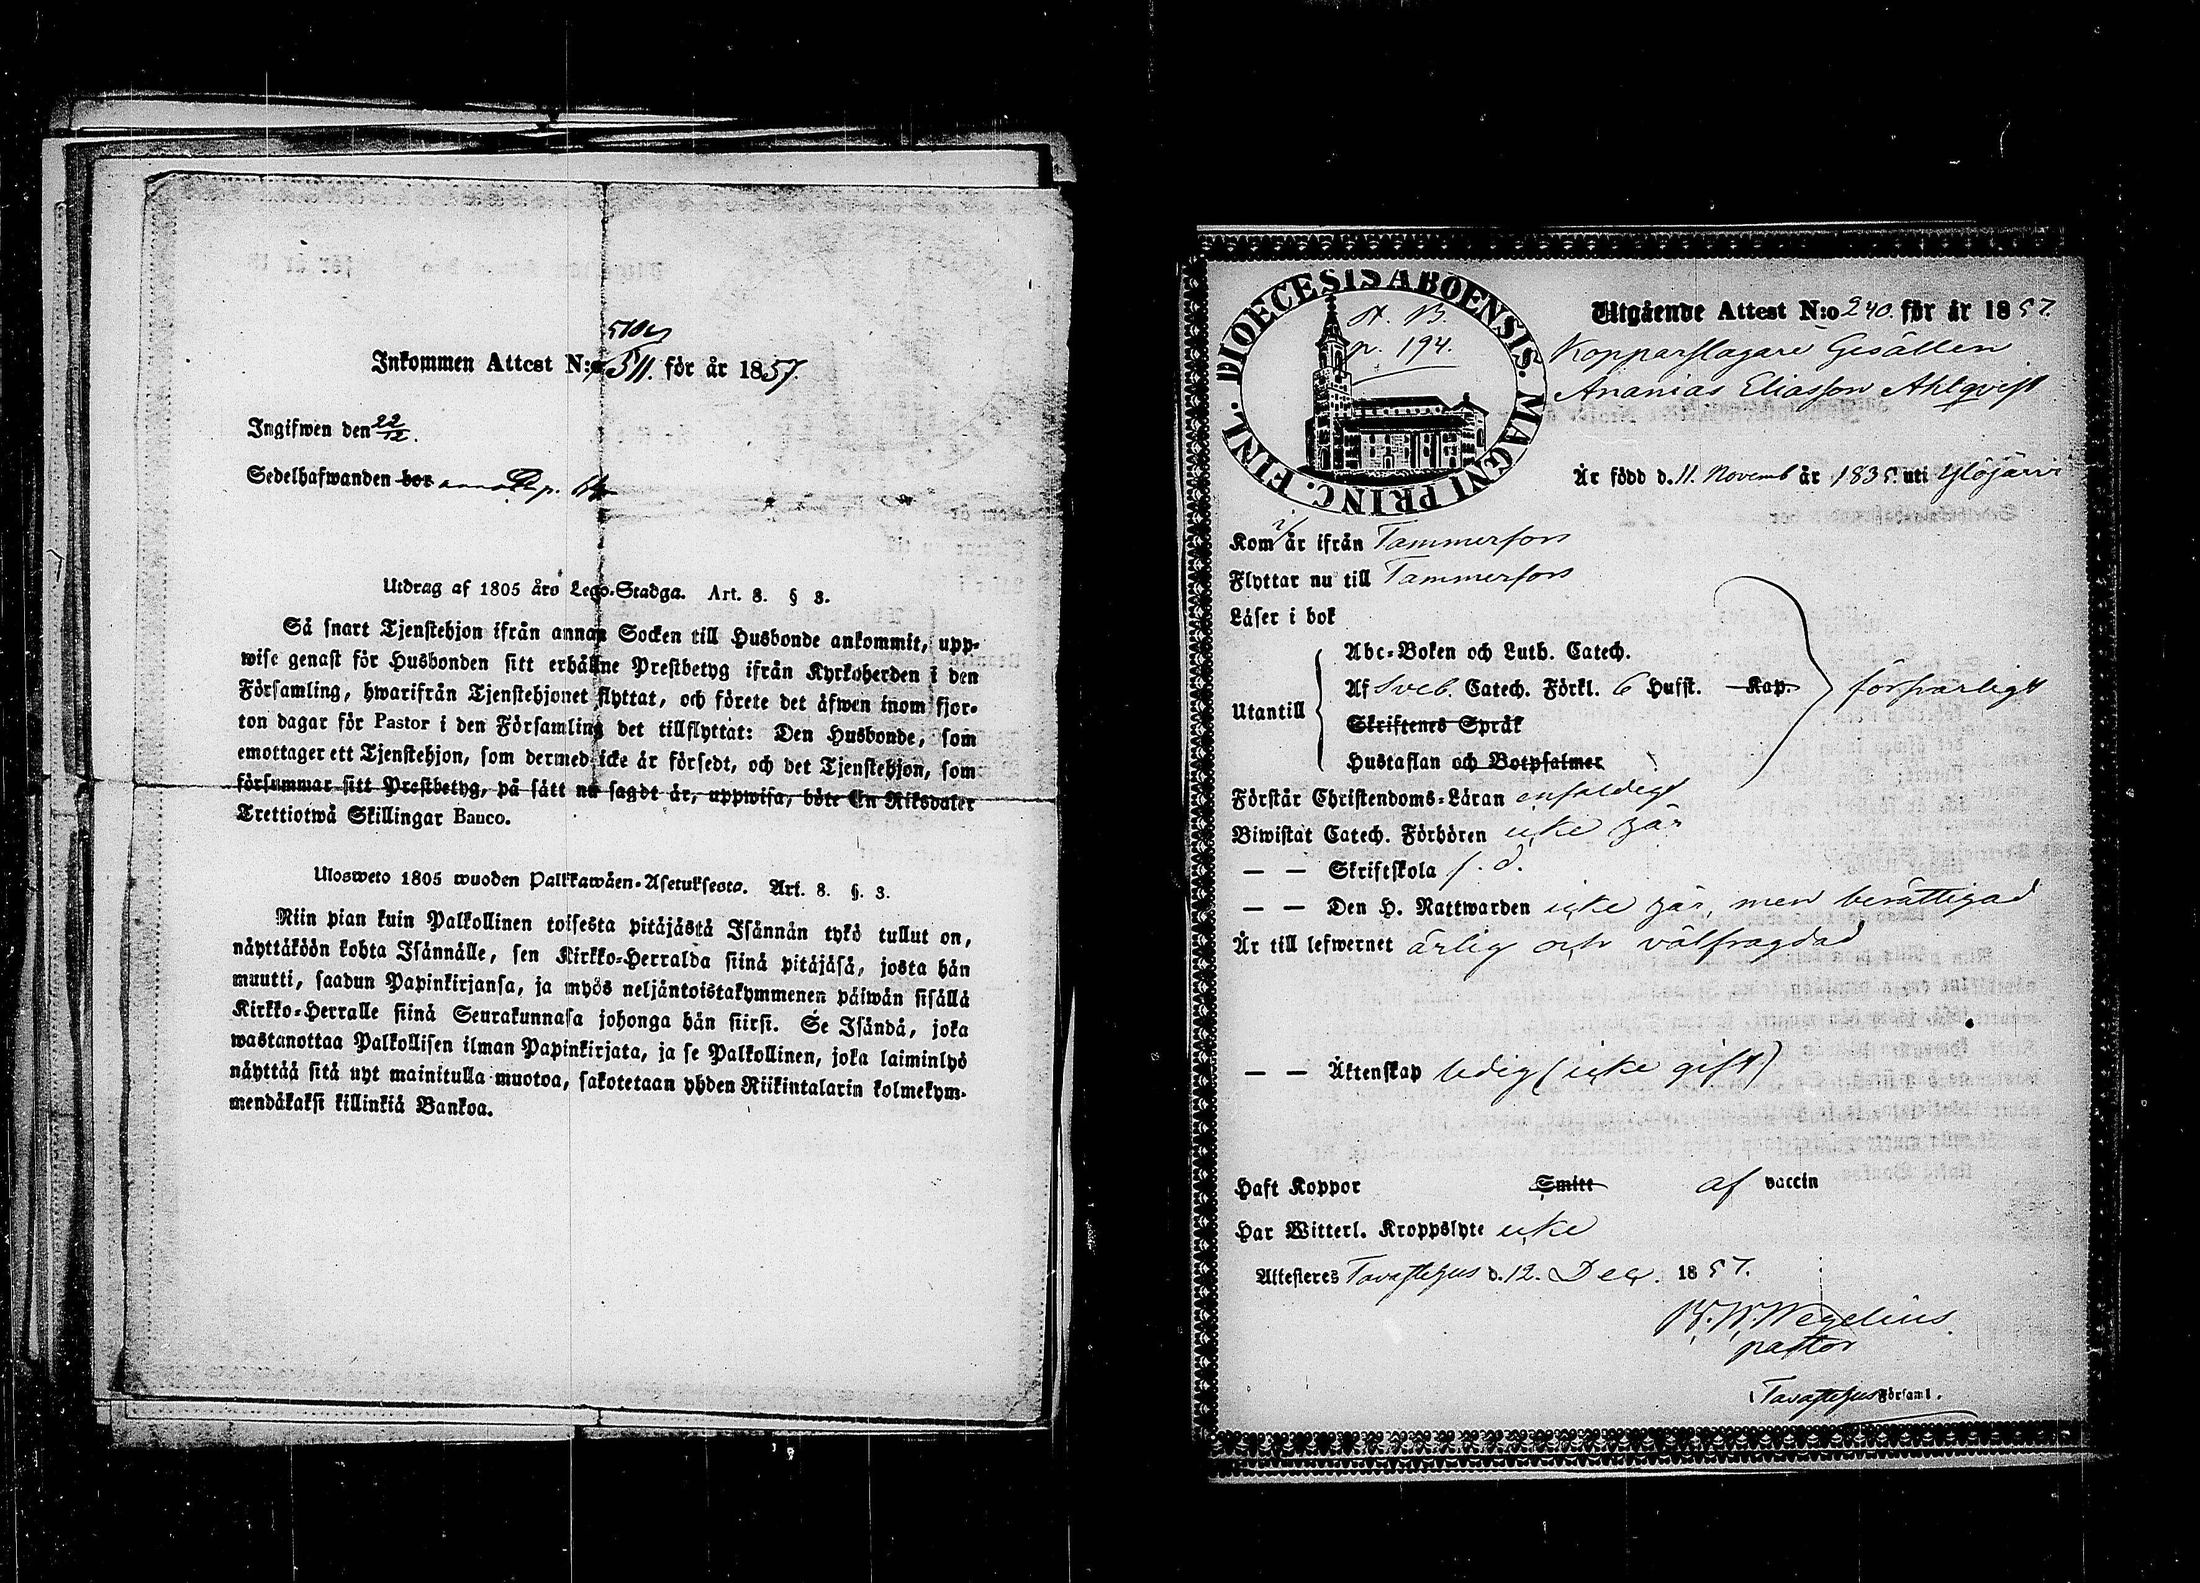 510 &
Inkommen Attest N:o 511. för år 1857.
Ingifwen den 22/12.
Sedelhafwanden bor p.
Utdrag af 1805 års Lego-Stadga. Art. 8. § 3.
Så snart Tjenstehjon ifrån annan Socken till Husbonde ankommit, upp-
wise genast för Husbonden sitt erhållne Prestbetyg ifrån Kyrkoherden i den
Församling, hwarifrån Tjenstehjonet flyttat, och förete det äfwen inom fjor-
ton dagar för Pastor i den Församling det tillflyttat: Den Husbonde, som
emottager ett Tjenstehjon, som dermed icke är försedt, och det Tjenstehjon, som
försummar sitt Prestbetyg, på sätt nu sagdt är, uppwisa, böte En Riksdaler
Trettiotwå Skillingar Banco.
Ulosweto 1805 wuoden Palkkawäen-Asetuksesta. Art. 8. §. 3.
Niin pian kuin Palkollinen toisesta pitäjästä Isännän tykö tullut on,
näyttäköön kohta Isännälle, sen Kirkko-Herralda siinä pitäjäsä, josta hän
muutti, saadun Papinkirjansa, ja myös neljäntoistakymmenen päiwän sisällä
Kirkko-Herralle siinä Seurakunnasa johonga hän siirsi. Se Isändä, joka
wastanottaa Palkollisen ilman Papinkirjata, ja se Palkollinen, joka laiminlyö
näyttää sitä nyt mainitulla muotoa, sakotetaan yhden Riikintalarin kolmekym-
mendäkaksi killinkiä Bankoa.
DIOECESIS ABOENSIS. MAGNI PRINC. FINL.
A. B.
p. 194.
Utgående Attest N:o 240. för år 1857.
Kopparslagare Gesällen
Ananias Eliasson Ahlqvist
Är född d. 11. Novemb år 1835. uti Ylöjärvi
Kom i/år ifrån Tammerfors
Flyttar nu till Tammerfors
Läser i bok
Abc-Boken och Luth. Catech.
Utantill Af Sveb. Catech. Förkl. 6 Hufst. Kap. försvarligt
Skriftenes Språk
Hustaflan och Botpsalmer
Förstår Christendoms-Läran enfaldigt
Biwistat Catech. Förhören icke här
— — Skriftskola s. d.
— — Den H. Nattwarden icke här, men berättigad
Är till lefwernet ärlig och välfrägdad
— — Äktenskap ledig (icke gift)
Haft Koppor Smitt af vaccin
Har Witterl. Kroppslyte icke
Attesteras Tavastehus d. 12. Dec. 1857.
W. Wegelius.
pastor
i Tavastehus Församl.